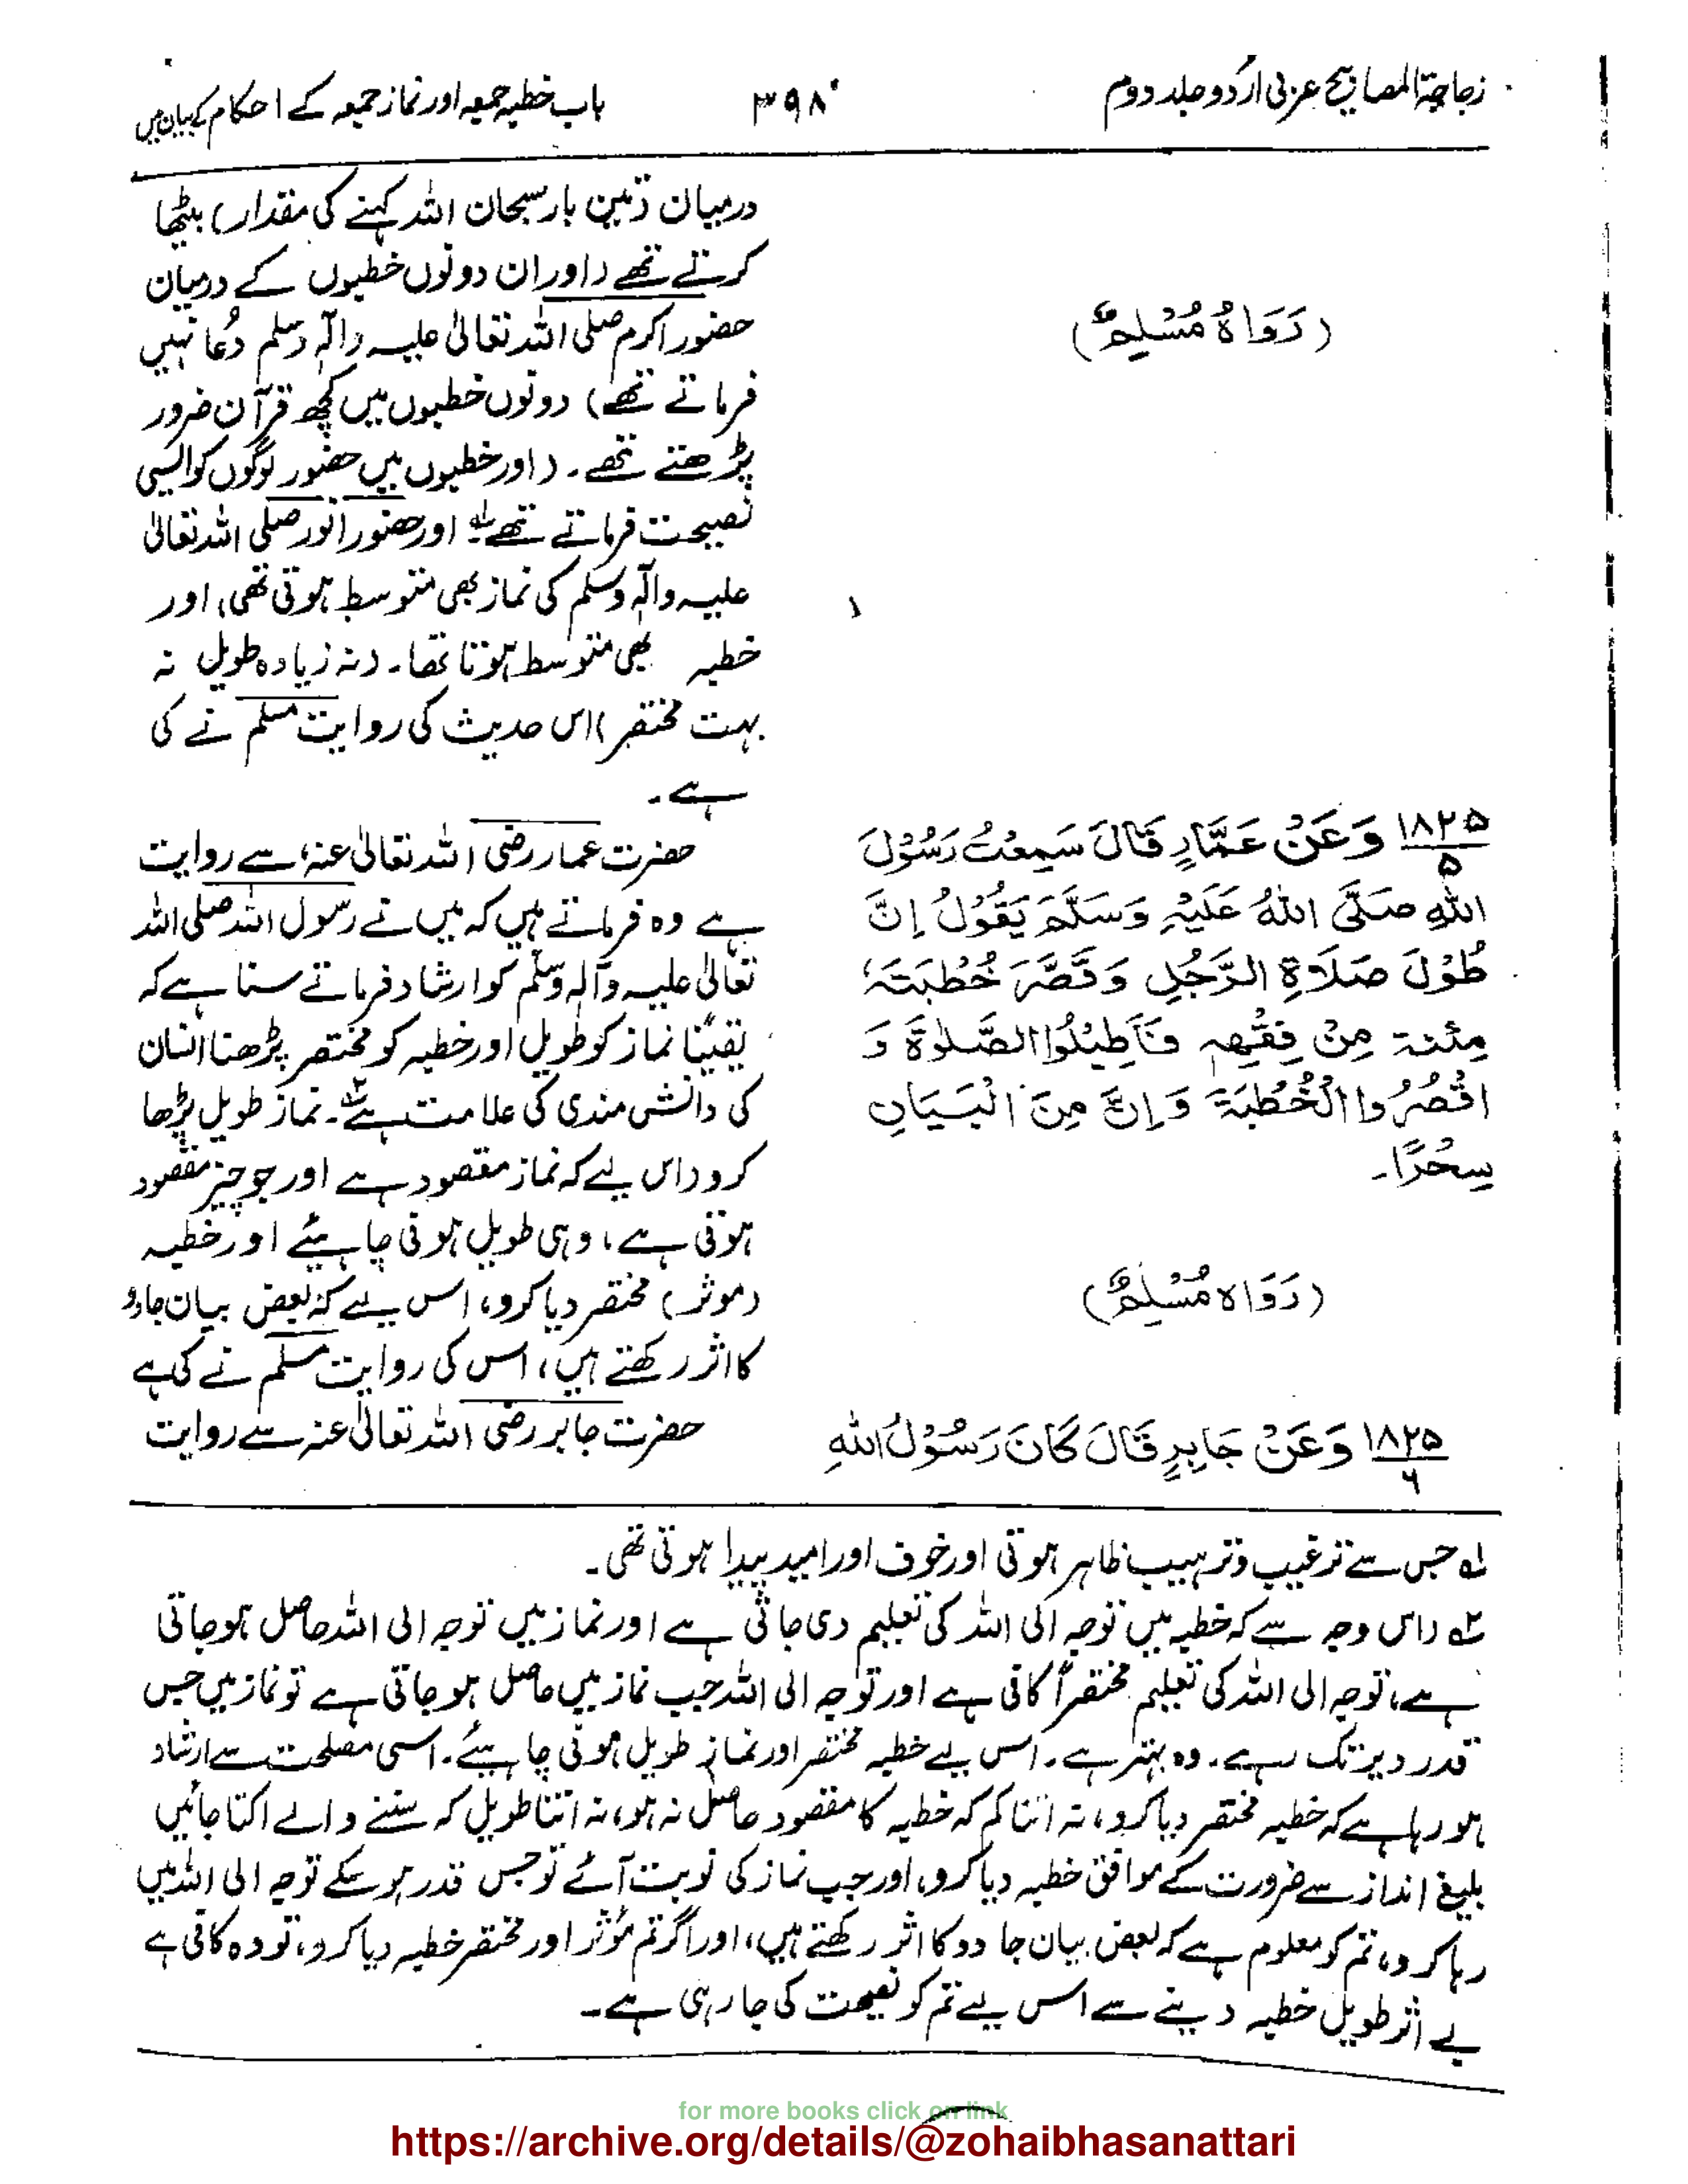 زجاجۃ المصابیح عربی اردو جلد دوم
۳۹۸
باب خطبہ جمعہ اور نماز جمعہ کے احکام کے بیان میں
(رَوَاهُ مُسْلِمٌ)
درمیان (تین بار سبحان اللہ کہنے کی مقدار) بیٹھا
کرتے تھے (اور ان دونوں خطبوں کے درمیان
حضور اکرم صلی اللہ تعالیٰ علیہ والہٖ وسلم دُعا نہیں
فرماتے تھے) دونوں خطبوں میں کچھ قرآن ضرور
پڑھتے تھے۔ (اور خطبوں میں حضور لوگوں کو ایسی
نصیحت فرماتے تھے لہ اور حضور انور صلی اللہ تعالیٰ
علیہ والہٖ وسلم کی نماز بھی متوسط ہوتی تھی، اور
خطبہ بھی متوسط ہوتا تھا۔ (نہ زیادہ طویل نہ
بہت مختصر) اس حدیث کی روایت مسلم نے کی
ہے۔
۱۸۲۵/۵ وَعَنْ عَمَّارٍ قَالَ سَمِعْتُ رَسُوْلَ
اللّٰهِ صَلَّى اللّٰهُ عَلَيْهِ وَسَلَّمَ يَقُوْلُ إِنَّ
طُوْلَ صَلَاةِ الرَّجُلِ وَقَصَّرَ خُطْبَتَهٗ
مِئنة مِنْ فِقْهِهٖ فَأَطِيْلُوا الصَّلٰوةَ وَ
اقْصُرُوا الْخُطْبَةَ وَإِنَّ مِنَ الْبَيَانِ
سِحْرًا۔
(رَوَاهُ مُسْلِمٌ)
حضرت عمار رضی اللہ تعالیٰ عنہ، سے روایت
ہے وہ فرماتے ہیں کہ میں نے رسول اللہ صلی اللہ
تعالیٰ علیہ وآلہٖ وسلم کو ارشاد فرماتے سنا ہے کہ
یقیناً نماز کو طویل اور خطبہ کو مختصر پڑھنا انسان
کی دانش مندی کی علامت ہے ۲۔ نماز طویل پڑھا
کرو (اس لیے کہ نماز مقصود ہے اور جو چیز مقصود
ہوتی ہے، وہی طویل ہونی چاہیئے اور خطبہ
(موثر) مختصر دیا کرو، اس لیے کہ بعض بیان جادو
کا اثر رکھتے ہیں، اس کی روایت مسلم نے کی ہے
۱۸۲۵/۶ وَعَنْ جَابِرٍ قَالَ كَانَ رَسُوْلُ اللّٰهِ
حضرت جابر رضی اللہ تعالیٰ عنہ سے روایت
لہ جس سے ترغیب و ترہیب ظاہر ہوتی اور خوف اور امید پیدا ہوتی تھی۔
۲ہ (اس وجہ سے کہ خطبہ میں توجہ الی اللہ کی تعلیم دی جاتی ہے اور نماز میں توجہ الی اللہ حاصل ہو جاتی
ہے، توجہ الی اللہ کی تعلیم مختصراً کافی ہے اور توجہ الی اللہ جب نماز میں حاصل ہو جاتی ہے تو نماز میں جس
قدر دیر تک رہے۔ وہ بہتر ہے۔ اس لیے خطبہ مختصر اور نماز طویل ہونی چاہیئے۔ اسی مصلحت سے ارشاد
ہو رہا ہے کہ خطبہ مختصر دیا کرو، نہ اتنا کم کہ خطبہ کا مقصود حاصل نہ ہو، نہ اتنا طویل کہ سننے والے اکتا جائیں
بلیغ انداز سے ضرورت کے موافق خطبہ دیا کرو، اور جب نماز کی نوبت آئے تو جس قدر ہو سکے توجہ الی اللہ میں
رہا کرو، تم کو معلوم ہے کہ بعض بیان جادو کا اثر رکھتے ہیں، اور اگر تم مؤثر اور مختصر خطبہ دیا کرو، تو وہ کافی ہے
بے اثر طویل خطبہ دینے سے اس لیے تم کو نصیحت کی جا رہی ہے۔
for more books click on link
https://archive.org/details/@zohaibhasanattari